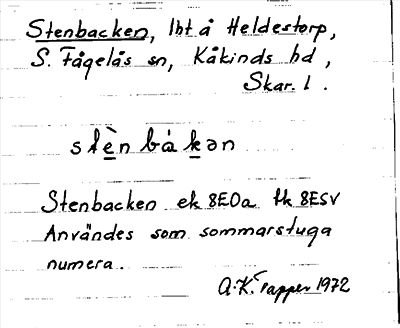 Stenbacken, lht å Heldestorp,
S. Fågelås sn, Kåkinds hd,
Skar. l.
stèn båkən
Stenbacken ek 8E0a tk 8ESV
Användes som sommarstuga
numera.
A.K. Trapper 1972